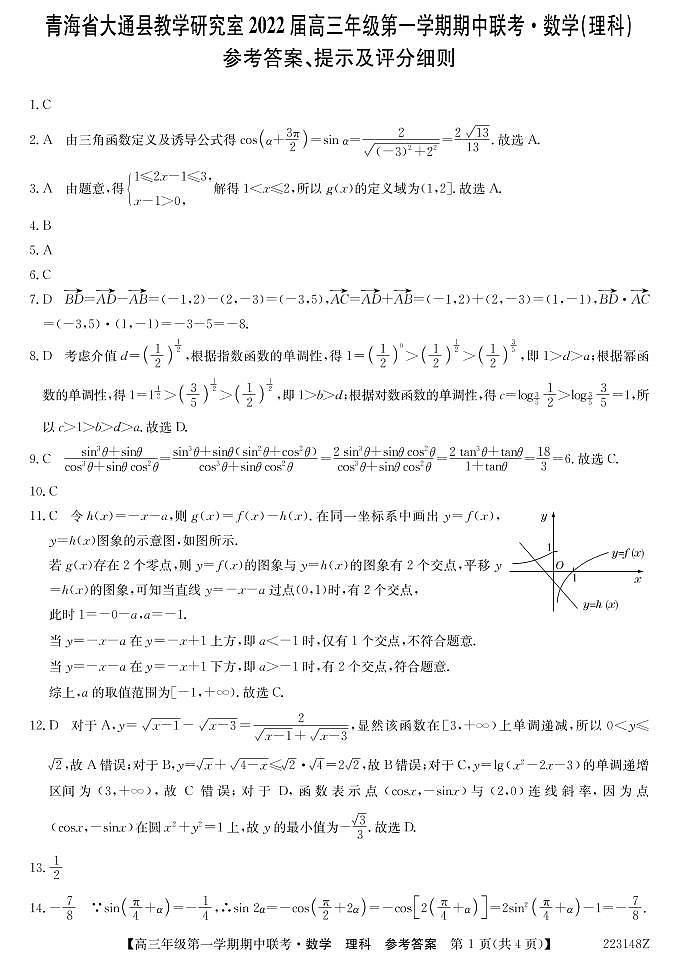 青海省大通县教学研究室 2022 届高三年级第一学期期中联考·数学(理科)
参考答案、提示及评分细则
1. C
2. A 由三角函数定义及诱导公式得 cos(α+3π/2)=sin α=2/√((-3)²+2²)=2√13/13. 故选 A.
3. A 由题意,得{1≤2x-1≤3, x-1>0, 解得 1<x≤2,所以 g(x)的定义域为(1,2]. 故选 A.
4. B
5. A
6. C
7. D BD→=AD→-AB→=(-1,2)-(2,-3)=(-3,5),AC→=AD→+AB→=(-1,2)+(2,-3)=(1,-1),BD→·AC→
=(-3,5)·(1,-1)=-3-5=-8.
8. D 考虑介值 d=(1/2)^(1/2),根据指数函数的单调性,得 1=(1/2)^0>(1/2)^(1/2)>(1/2)^(3/5),即 1>d>a;根据幂函
数的单调性,得 1=1^(1/2)>(3/5)^(1/2)>(1/2)^(1/2),即 1>b>d;根据对数函数的单调性,得 c=log_(3/5) 1/2>log_(3/5) 3/5=1,所
以 c>1>b>d>a. 故选 D.
9. C (sin³θ+sinθ)/(cos³θ+sinθcos²θ)=(sin³θ+sinθ(sin²θ+cos²θ))/(cos³θ+sinθcos²θ)=(2sin³θ+sinθcos²θ)/(cos³θ+sinθcos²θ)=(2tan³θ+tanθ)/(1+tanθ)=18/3=6. 故选 C.
10. C
11. C 令 h(x)=-x-a,则 g(x)=f(x)-h(x). 在同一坐标系中画出 y=f(x),
y=h(x)图象的示意图,如图所示.
若 g(x)存在 2 个零点,则 y=f(x)的图象与 y=h(x)的图象有 2 个交点,平移 y
=h(x)的图象,可知当直线 y=-x-a 过点(0,1)时,有 2 个交点,
此时 1=-0-a,a=-1.
当 y=-x-a 在 y=-x+1 上方,即 a<-1 时,仅有 1 个交点,不符合题意.
当 y=-x-a 在 y=-x+1 下方,即 a>-1 时,有 2 个交点,符合题意.
综上,a 的取值范围为[-1,+∞). 故选 C.
y
1
O
1
x
y=f(x)
y=h(x)
12. D 对于 A,y=√(x-1)-√(x-3)=2/(√(x-1)+√(x-3)),显然该函数在[3,+∞)上单调递减,所以 0<y≤
√2,故 A 错误;对于 B,y=√x+√(4-x)≤√2·√4=2√2,故 B 错误;对于 C,y=lg(x²-2x-3)的单调递增
区间为(3,+∞),故 C 错误;对于 D,函数表示点(cosx,-sinx)与(2,0)连线斜率,因为点
(cosx,-sinx)在圆 x²+y²=1 上,故 y 的最小值为-√3/3. 故选 D.
13. 1/2
14. -7/8 ∵sin(π/4+α)=-1/4,∴sin 2α=-cos(π/2+2α)=-cos[2(π/4+α)]=2sin²(π/4+α)-1=-7/8.
【高三年级第一学期期中联考·数学 理科 参考答案 第 1 页(共 4 页)】 223148Z